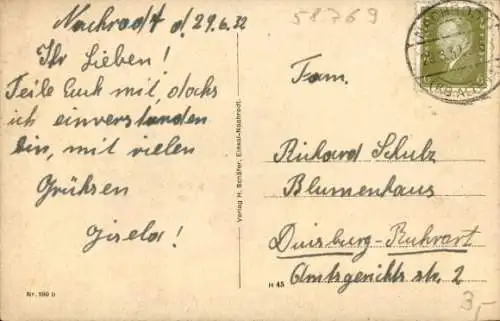 Nachrodt d. 29.6.32
Ihr Lieben!
Teile Euch mit, dachs
ich einverstanden
bin, mit vielen
Grühsen
Gisela!
Verlag H. Schäfer, Einsal-Nachrodt.
Nr. 199 b
58769
Fam.
Richard Schulz
Blumenhaus
Duisburg-Ruhrort
Amtsgerichts str. 2
H 45
3,-